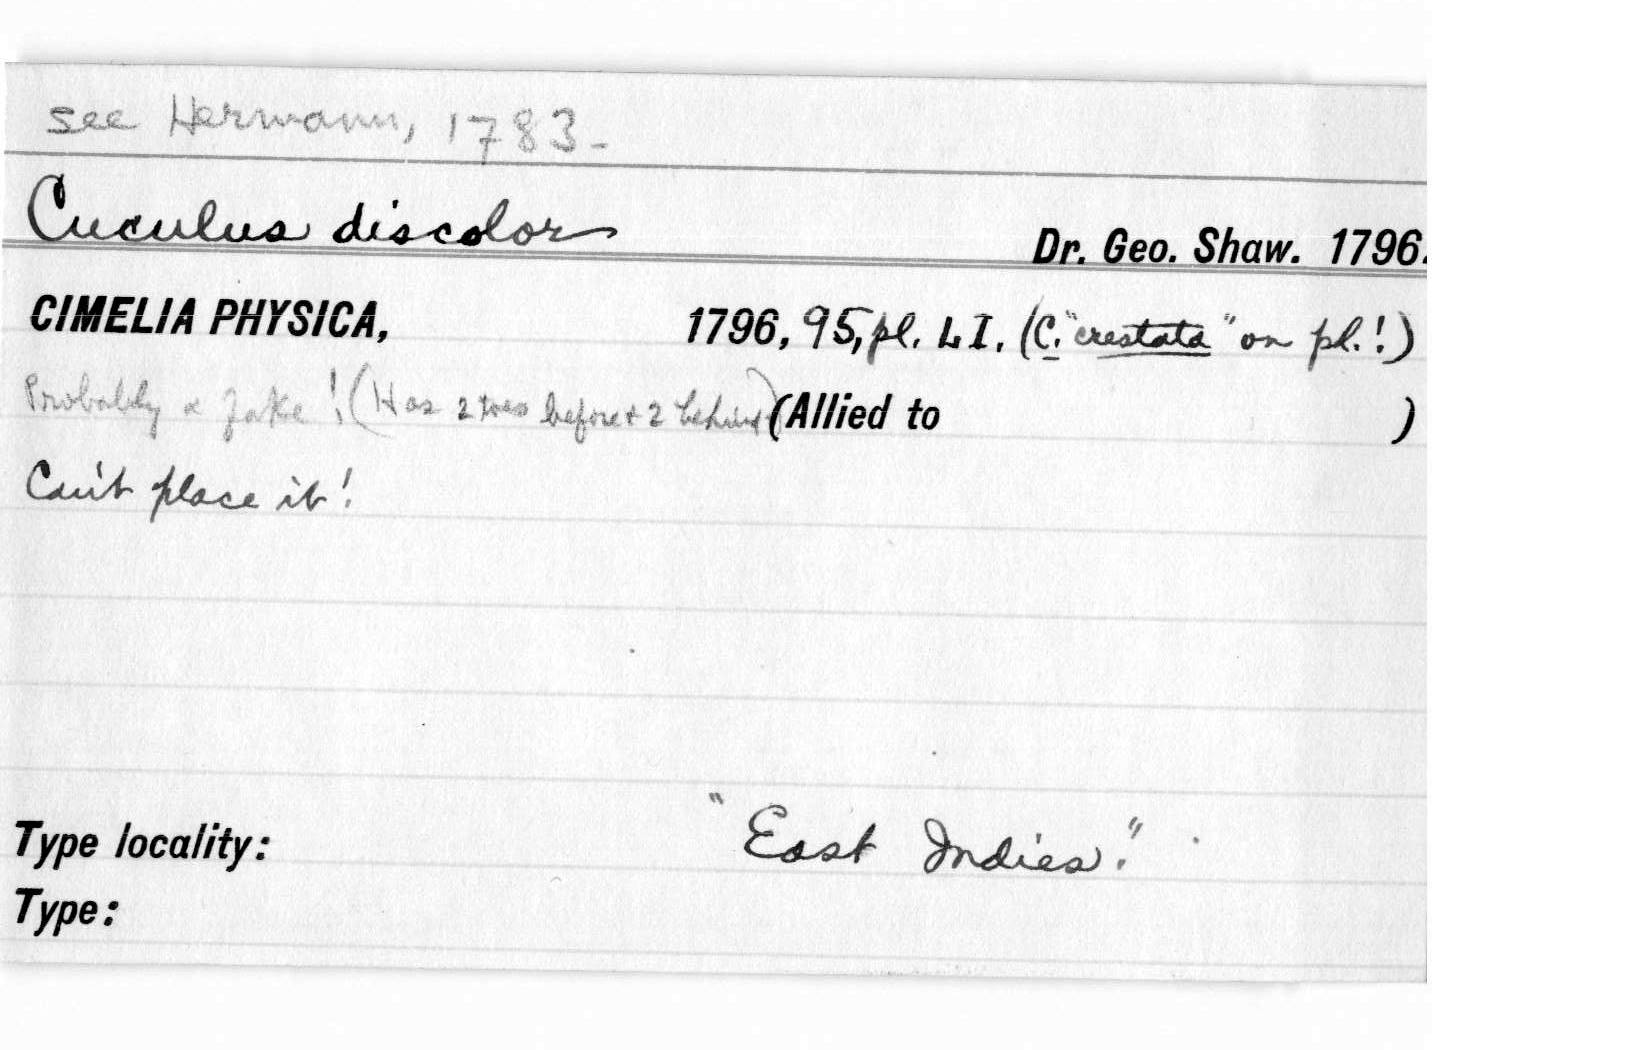 see Hermann, 1783-
Cuculus discolor Dr. Geo. Shaw. 1796.
CIMELIA PHYSICA, 1796, 95, pl. LI. (C. "crestata" on pl.!)
Probably a fake! (Has 2 toes before + 2 behind) (Allied to )
Can't place it!
Type locality: "East Indies."
Type: